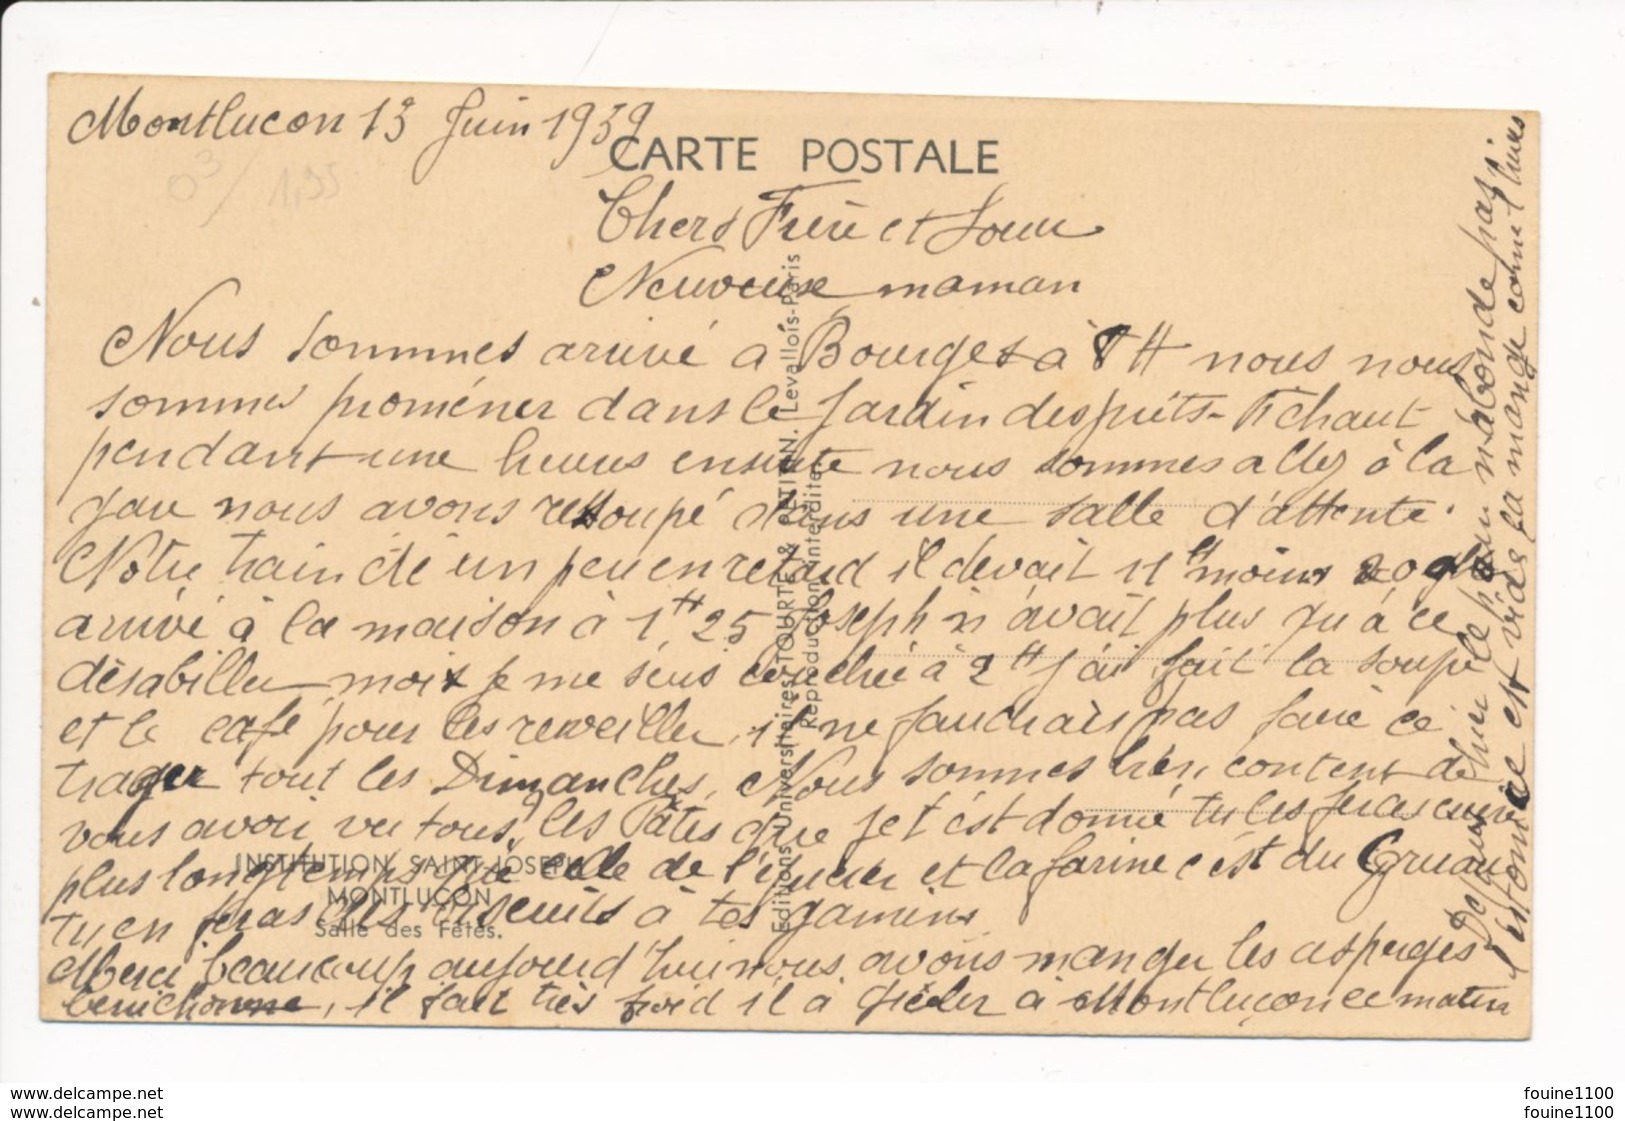 Montlucon 13 Juin 1939
CARTE POSTALE
03/ 1,95
Chers Frère et Soeur
Neuveuse maman
Nous sommes arrivé a Bourges à 8H nous nous
sommes proméner dans le Jardin des prés-Fichaut
pendant une heures ensuite nous sommes allez à la
gare nous avons resoupé dans une salle d'attente.
Notre train été un peu en retard il devait 11H moins 20
arrivé à la maison à 1H25 Joseph n'avait plus qu'a ce
désabiller mois je me suis couchée à 2H j'ai fait la soupe
et le café pour les reveiller, il ne faudrais pas faire ce
trager tout les Dimanches. Nous sommes très content de
vous avoir vu tous, les Pâtes que je t'ést donné tu les feras cuire
plus longtemps que celle de l'épicier et la farine c'ést du Gruau
tu en feras des biscuits à tes gamins
Merci beaucoup aujourd'hui nous avons manger les asperges
berrichonne, il fait très froid il à géeler à Montluçon ce matin
le pain n'abonde pas.
l'estomac est vide ça mange comme
Editions Universitaires TOURTE & PETITIN. Levallois-Paris
Reproduction interdite
INSTITUTION SAINT-JOSEPH
MONTLUÇON
Salle des Fêtes.
fouine1100
fouine1100
www.delcampe.net
www.delcampe.net